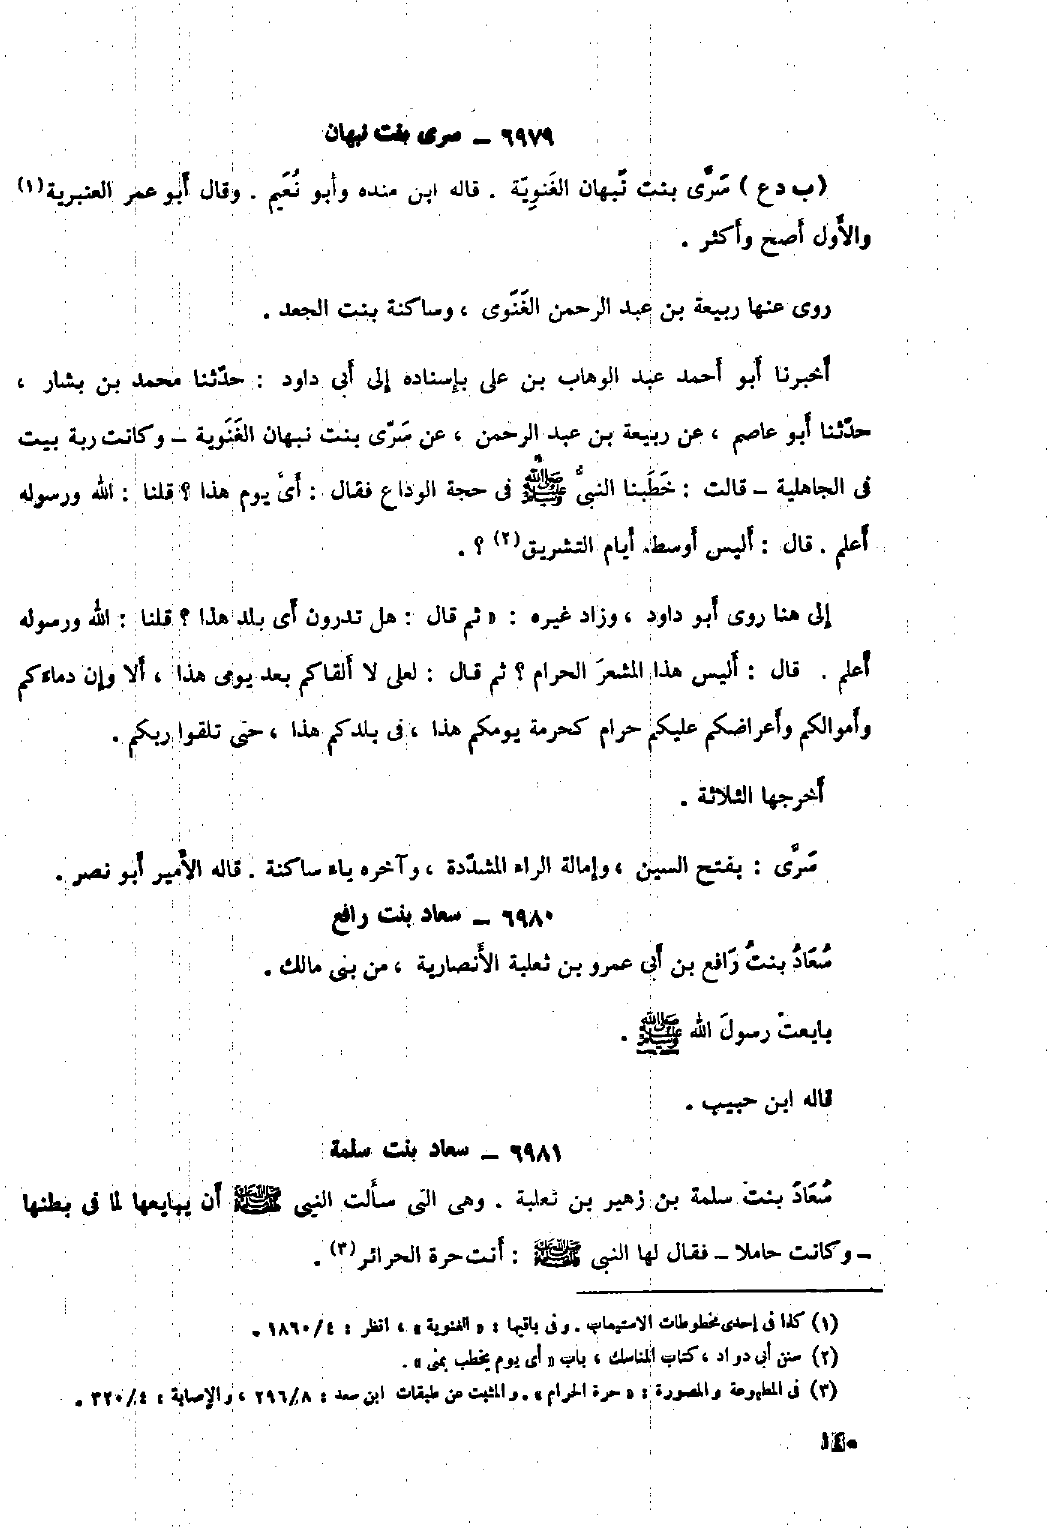 ٦٩٧٩ ــ سرى بنت نبهان
(ب د ع) سَرَّى بنت نَبهان الغَنوِيّة . قاله ابن منده وأبو نُعَيم . وقال أبو عمر العنبرية(١)
والأَول أصح وأكثر .
روى عنها ربيعة بن عبد الرحمن الغَنَوى ، وساكنة بنت الجعد .
أخبرنا أبو أحمد عبد الوهاب بن على بإسناده إلى أبى داود : حدّثنا محمد بن بشار ،
حدّثنا أبو عاصم ، عن ربيعة بن عبد الرحمن ، عن سَرّى بنت نبهان الغَنَوية ــ وكانت ربة بيت
فى الجاهلية ــ قالت : خَطَبنا النبىُّ ﷺ فى حجة الوداع فقال : أَىُّ يوم هذا ؟ قلنا : الله ورسوله
أعلم . قال : أليس أوسط أيام التشريق(٢) ؟ .
إلى هنا روى أبو داود ، وزاد غيره : « ثم قال : هل تدرون أى بلد هذا ؟ قلنا : الله ورسوله
أعلم . قال : أليس هذا المشعرَ الحرام ؟ ثم قال : لعلى لا ألقاكم بعد يومى هذا ، ألا وإن دماءكم
وأموالكم وأعراضكم عليكم حرام كحرمة يومكم هذا ، فى بلدكم هذا ، حتى تلقوا ربكم .
أخرجها الثلاثة .
سَرَّى : بفتح السين ، وإمالة الراء المشدّدة ، وآخره ياء ساكنة . قاله الأمير أبو نصر .
٦٩٨٠ ــ سعاد بنت رافع
سُعَادُ بنتُ رَافع بن أبى عمرو بن ثعلبة الأَنصارية ، من بنى مالك .
بايعتْ رسولَ الله ﷺ .
قاله ابن حبيب .
٦٩٨١ ــ سعاد بنت سلمة
سُعَادُ بنت سلمة بن زهير بن ثعلبة . وهى التى سألت النبى ﷺ أن يبايعها لما فى بطنها
ــ وكانت حاملا ــ فقال لها النبى ﷺ : أنت حرة الحرائر(٣) .
(١) كذا فى إحدى مخطوطات الاستيعاب . وفى باقيها : « الغنوية » ، انظر : ٤/ ١٨٦٠ .
(٢) سنن أبى دواد ، كتاب المناسك ، باب « أى يوم يخطب بمنى » .
(٣) فى المطبوعة والمصورة : « حرة الحرام » . والمثبت عن طبقات ابن سعد : ٨/ ٢٩٦ ، والإصابة : ٤/ ٣٢٠ .
١٤٠